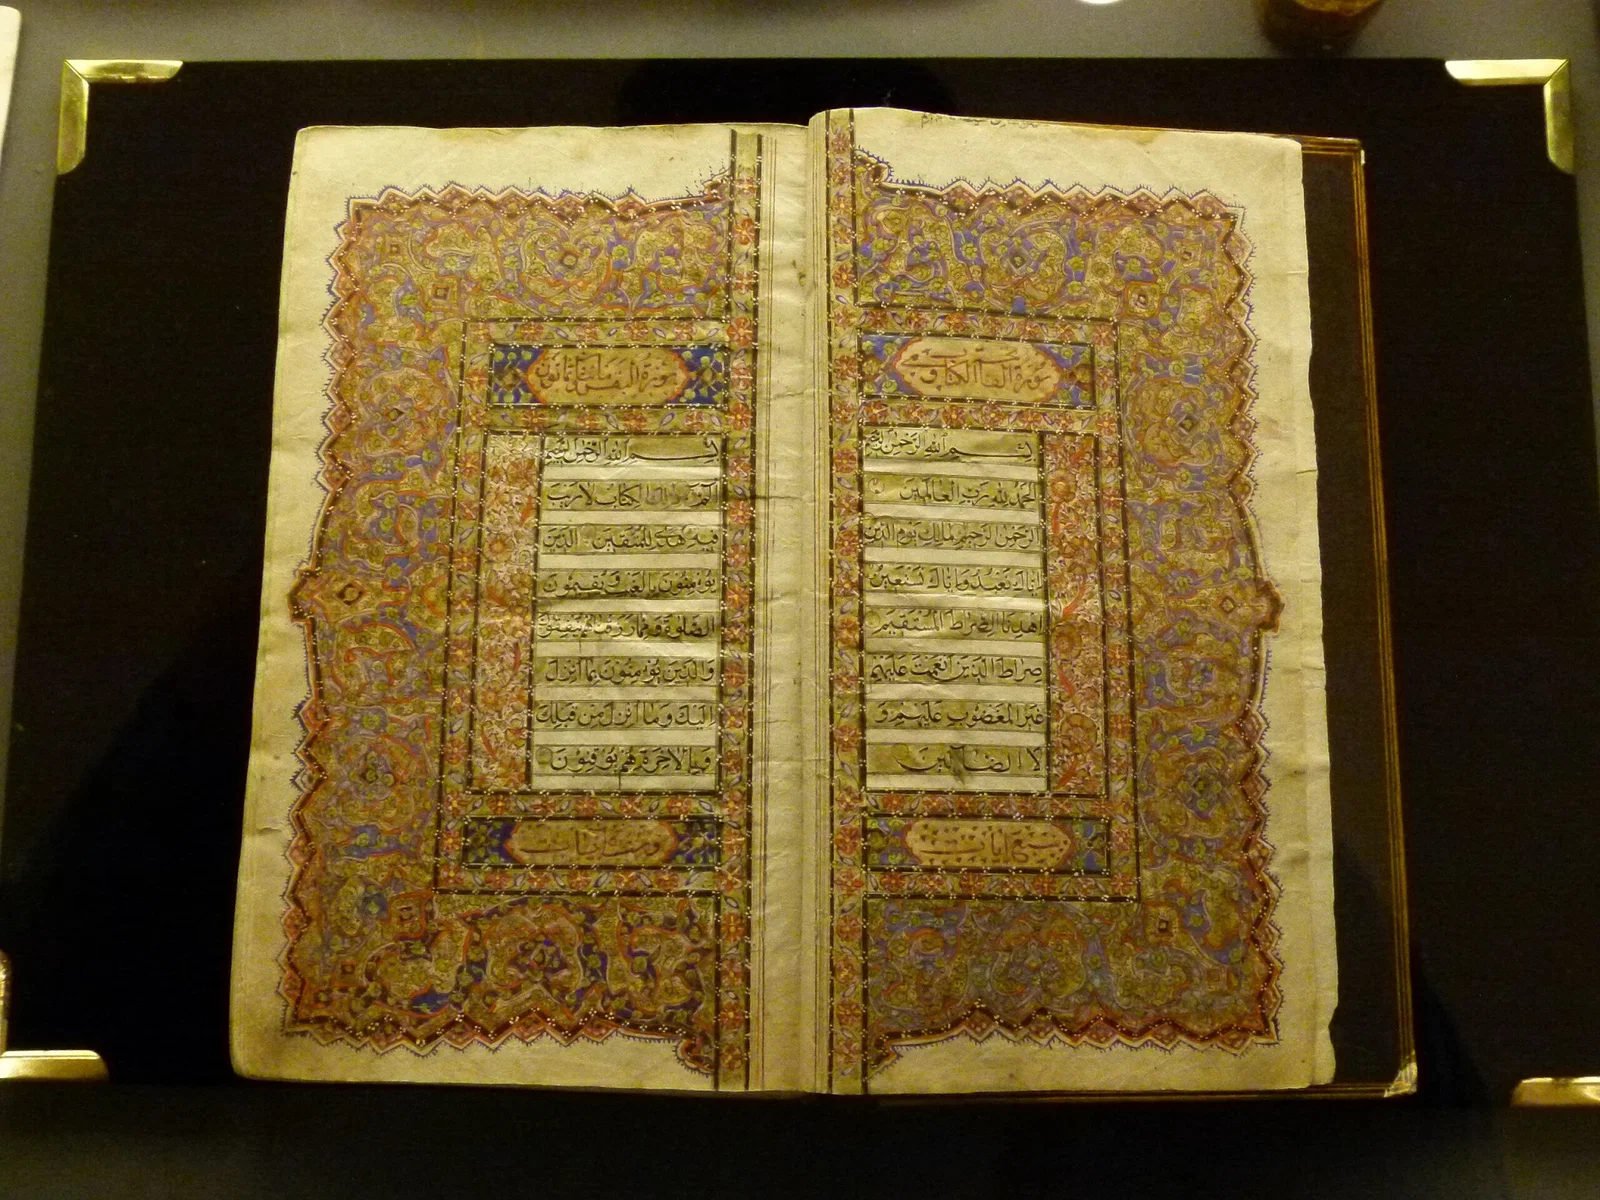 سورة الفاتحة الكتاب
بسم الله الرحمن الرحيم
الحمد لله رب العالمين
الرحمن الرحيم ملك يوم الدين
اياك نعبد واياك نستعين
اهدنا الصراط المستقيم
صراط الذين انعمت عليهم
غير المغضوب عليهم و
لا الضالين
سبع ايات
سورة البقرة مائتا
بسم الله الرحمن الرحيم
الم ذلك الكتاب لا ريب
فيه هدى للمتقين الذين
يؤمنون بالغيب ويقيمون
الصلوة ومما رزقناهم ينفقون
والذين يؤمنون بما انزل
اليك وما انزل من قبلك
وبالاخرة هم يوقنون
وست ايات